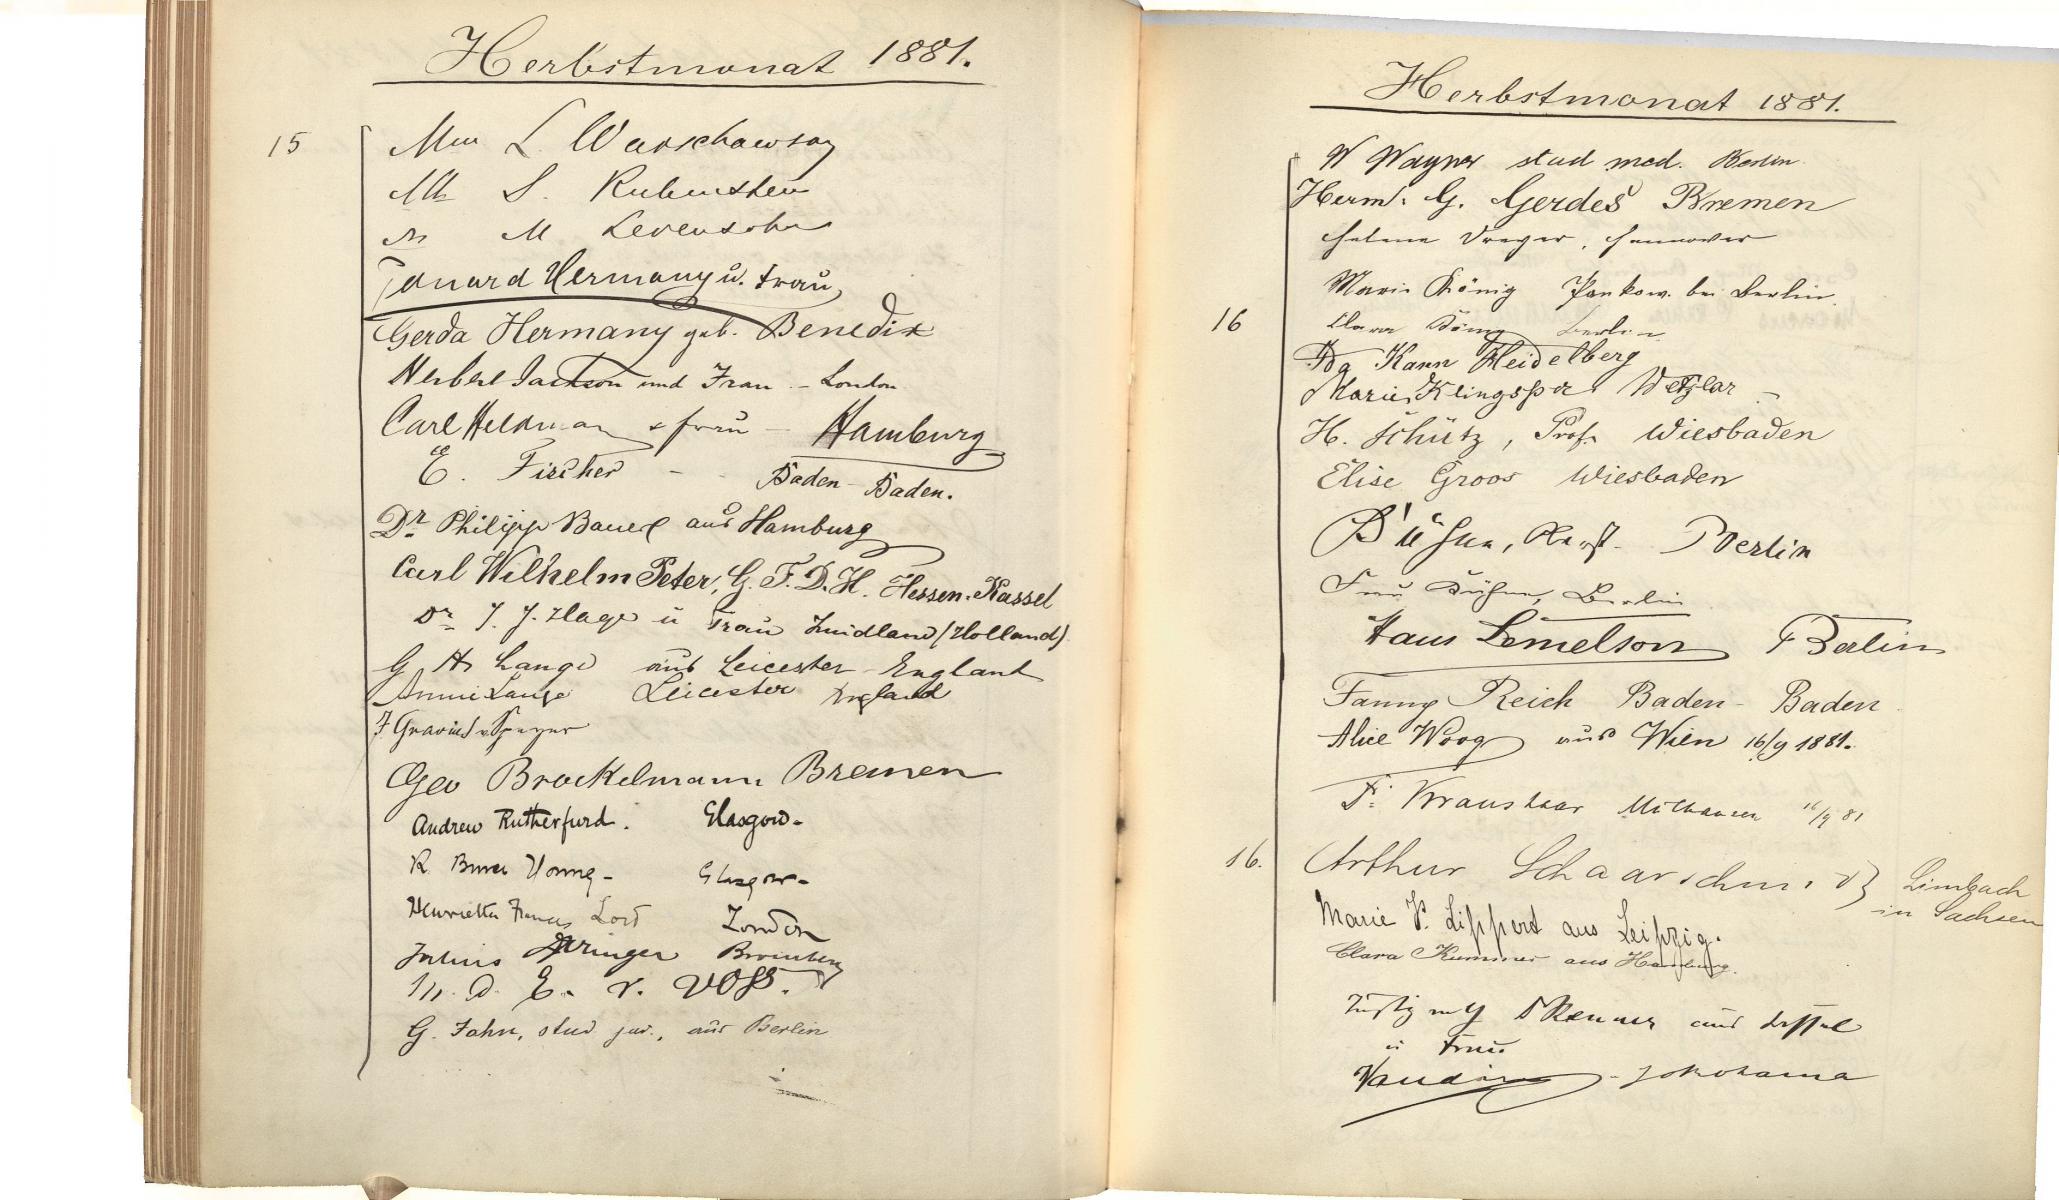 Herbstmonat 1881.
15
L. Warschawsky
S. Rubenstein
M Levensohn
Eduard Hermany u. Frau
Gerda Hermany geb. Benedix
Herbert Jackson und Frau - London
Carl Heldmann & frau - Hamburg
E. Fischer - - Baden-Baden.
Dr Philipp Bauer aus Hamburg
Carl Wilhelm Peter, G. F. D. H. Hessen-Kassel
Dr J. J. Hage u Frau Zuidland (Holland)
G H Lange aus Leicester England
Annie Lange Leicester England
Geo Brockelmann Bremen
Andrew Rutherfurd. Glasgow-
R. Bruce Young- Glasgow-
Henrietta Frances Lord London
Julius Springer Bromberg
E. v. Voss.
G. Jahn, stud jur., aus Berlin
Herbstmonat 1881.
W Wagner stud med. Berlin
Herm. G. Gerdes Bremen
Helene Dreyer, Hannover
Marie König Pankow bei Berlin.
16
Clara König Berlin
Ida Kann Heidelberg
Marie Klingspor Wetzlar -
H. Schütz, Prof. Wiesbaden
Elise Groos Wiesbaden
Berlin
Frau Berlin
Hans Lemelson Berlin
Fanny Reich Baden-Baden
Alice Woog aus Wien 16/9 1881.
Fr. Kraushaar Mülhausen 16/9 81
16.
Arthur Schaarschmidt } Limbach
in Sachsen
Marie V. Lippert aus Leipzig.
Clara Kummer aus Hamburg.
aus
u Frau
- Jokohama